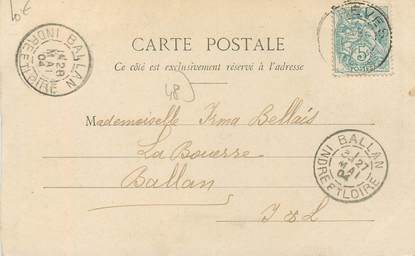 10€
CARTE POSTALE
Ce côté est exclusivement réservé à l'adresse
48
Mademoiselle Irma Bellais
La Bouerre
Ballan
I & L
BALLAN
28
MAI
04
INDRE ET LOIRE
EVES
5
BALLAN
27
MAI
04
INDRE ET LOIRE